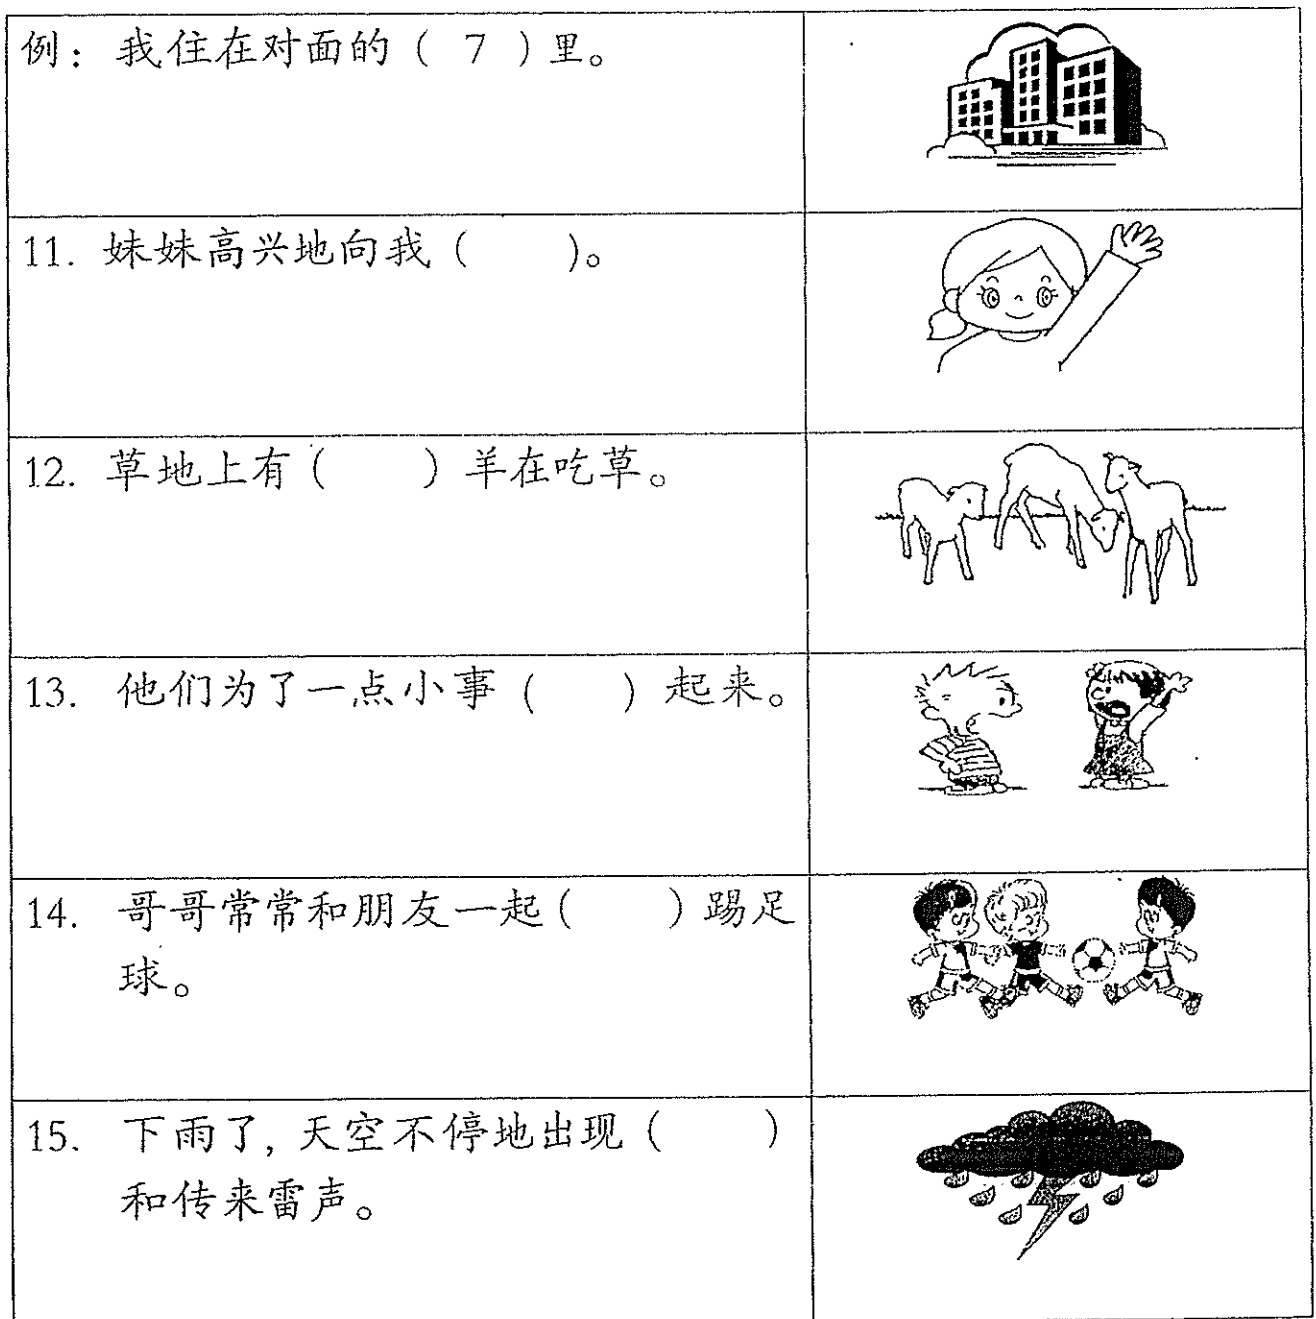 例：我住在对面的（ 7 ）里。
11. 妹妹高兴地向我（    ）。
12. 草地上有（    ）羊在吃草。
13. 他们为了一点小事（    ）起来。
14. 哥哥常常和朋友一起（    ）踢足
球。
15. 下雨了，天空不停地出现（    ）
和传来雷声。